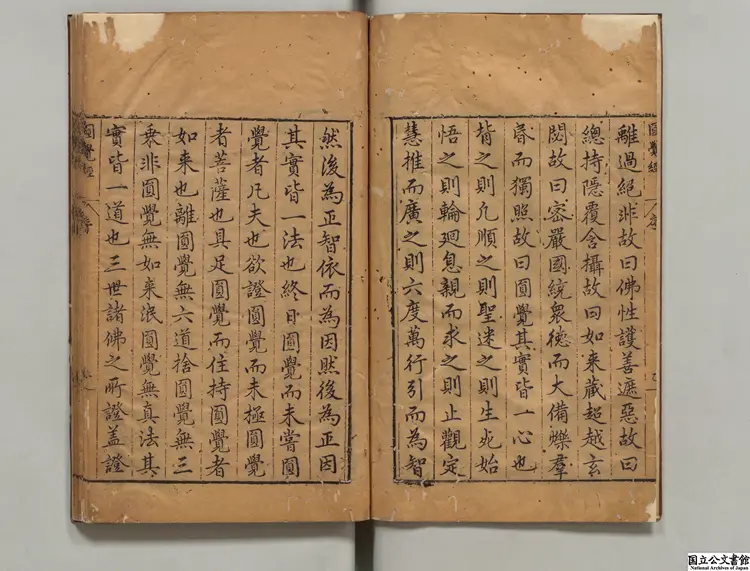 圓覺經
序
離過絕非故曰佛性護善遮惡故曰
總持隱覆含攝故曰如来藏超越玄
閟故曰密嚴國統衆德而大備爍羣
昏而獨照故曰圓覺其實皆一心也
背之則凡順之則聖迷之則生死始
悟之則輪廻息親而求之則止觀定
慧推而廣之則六度萬行引而為智
然後為正智依而為因然後為正因
其實皆一法也終日圓覺而未甞圓
覺者凡夫也欲證圓覺而未極圓覺
者菩薩也具足圓覺而住持圓覺者
如来也離圓覺無六道捨圓覺無三
乘非圓覺無如来泯圓覺無真法其
實皆一道也三世諸佛之所證盖證
圓覺經
序
国立公文書館
National Archives of Japan